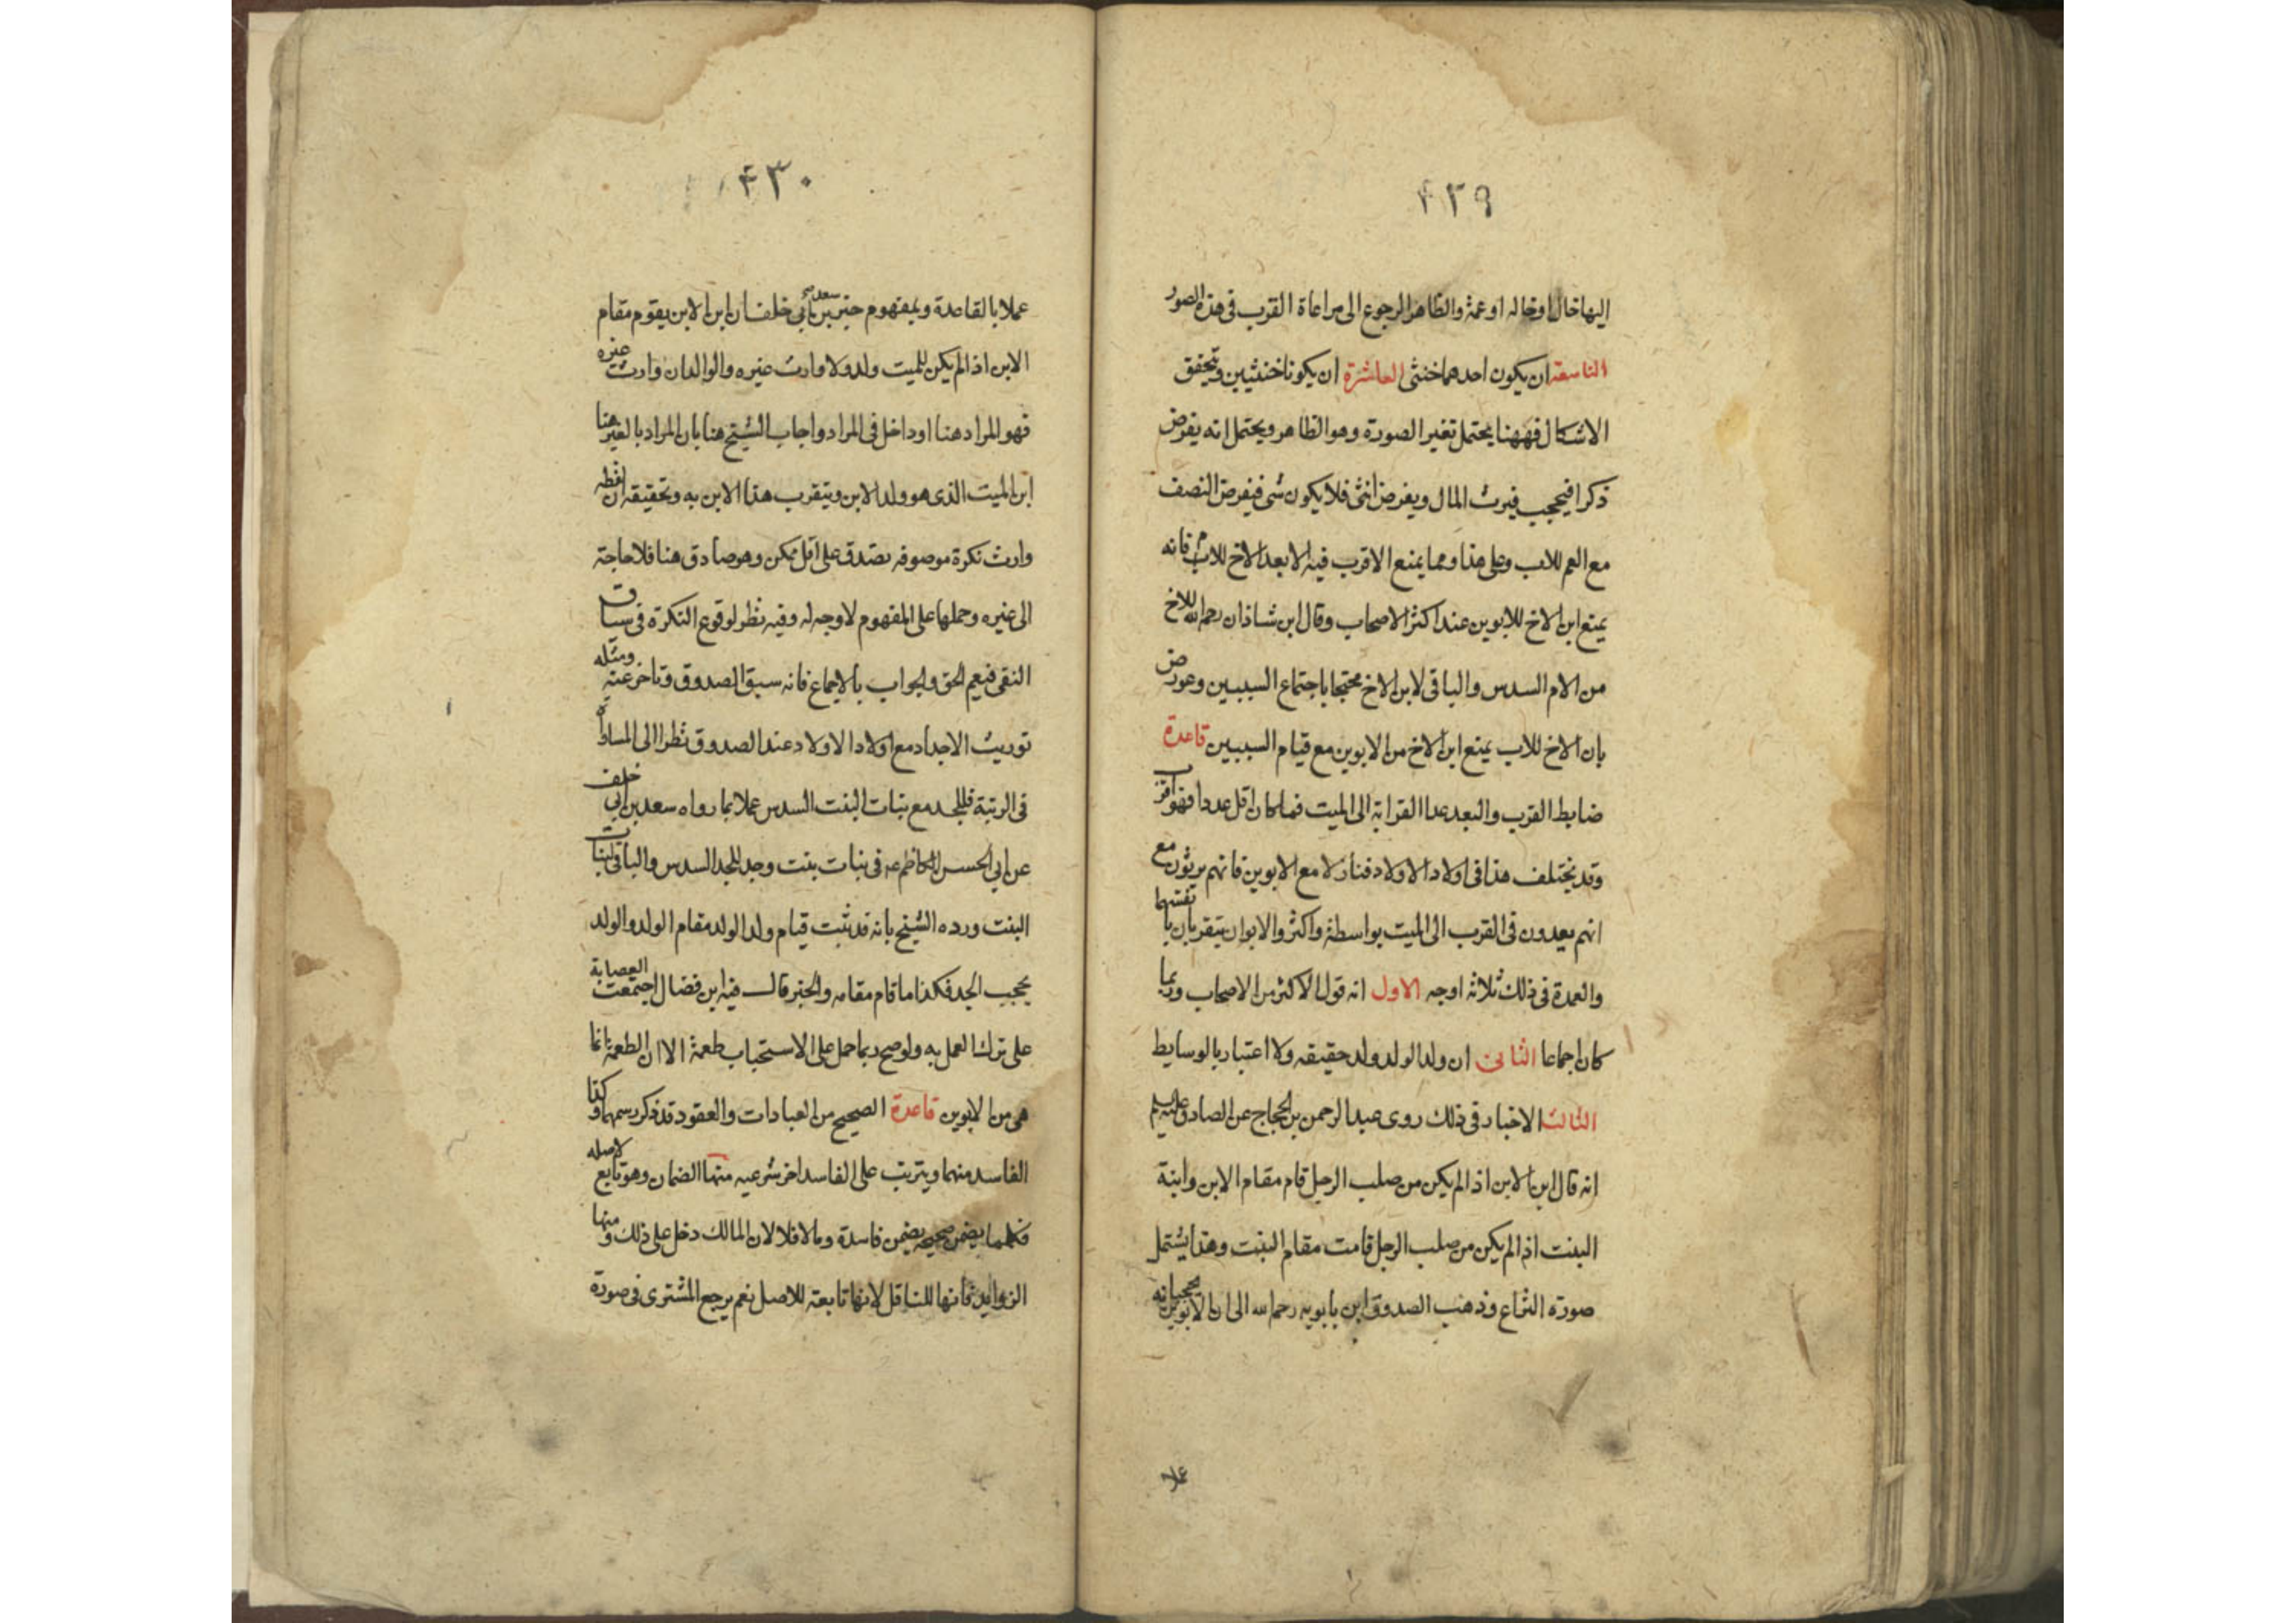 ٤٢٩
اليها خال او خاله او عمة والظاهر الرجوع الى مراعاة القرب فى هذه الصور
التاسعة ان يكون احدهما خنثى العاشرة ان يكونا خنثيين وتحقق
الاشكال فههنا يحتمل تغير الصورة وهو الظاهر ويحتمل انه يفرض
ذكرا فيحجب فيرث المال ويفرض انثى فلا يكون شى فيفرض النصف
مع العم للاب وعلى هذا ومما يمنع الاقرب فيه الابعد الاخ للاب فانه
يمنع ابن الاخ للابوين عند اكثر الاصحاب وقال ابن شاذان رحمه الله للاخ
من الام السدس والباقى لابن الاخ محتجا باجتماع السببين وعورض
بان الاخ للاب يمنع ابن الاخ من الابوين مع قيام السببين قاعدة
ضابط القرب والبعد عدا القرابة الى الميت فما كان اقل عددا فهو اقرب
وقد يختلف هذا فى اولاد الاولاد فنازلا مع الابوين فانهم يرثون مع
انهم بعيدون فى القرب الى الميت بواسطة واكثر والابوان يتقربان بانفسهما
والعمدة فى ذلك ثلاثة اوجه الاول انه قول الاكثر من الاصحاب وربما
كان اجماعا الثانى ان ولد الولد ولد حقيقه ولا اعتبار بالوسايط
الثالث الاخبار فى ذلك روى عبد الرحمن بن الحجاج عن الصادق عليه السلم
انه قال ابن الابن اذا لم يكن من صلب الرجل قام مقام الابن وابنة
البنت اذا لم يكن من صلب الرجل قامت مقام البنت وهذا يشتمل
صورة النزاع وذهب الصدوق ابن بابويه رحمه الله الى ان الابوين يحجبانه
عملا
٤٣٠
عملا بالقاعدة وبمفهوم خبر سعد بن ابى خلف ان ابن الابن يقوم مقام
الابن اذا لم يكن للميت ولد ولا وارث غيره والوالدان وارث غيره
فهو المراد هنا او داخل فى المراد واجاب الشيخ هنا بان المراد بالغير هنا
ابن الميت الذى هو ولد الابن ويتقرب هذا الابن به وتحقيقه ان لفظه
وارث نكرة موصوفه تصدق على اقل ممكن وهو صادق هنا فلا حاجة
الى غيره وحملها على المفهوم لا وجه له وفيه نظر لوقوع النكرة فى سياق
النفى فيعم الحق والجواب بالاجماع فانه سبق الصدوق وتاخر عنه ومثله
توريث الاجداد مع اولاد الاولاد عند الصدوق نظرا الى المساواة
فى الرتبة فللجد مع بنات البنت السدس عملا بما رواه سعد بن ابى خلف
عن ابى الحسن الكاظم عم فى بنات بنت وجد للجد السدس والباقى لبنات
البنت ورده الشيخ بانه قد ثبت قيام ولد الولد مقام الولد والولد
يحجب الجد فكذا ما قام مقامه والخبر قال فيه ابن فضال اجتمعت العصابة
على ترك العمل به ولو صح ربما حمل على الاستحباب طعمة الا ان الطعمة انما
هى من الابوين قاعدة الصحيح من العبادات والعقود قد ذكر رسمهما وكذا
الفاسد منهما ويترتب على الفاسد اخر شرعيه منها الضمان وهو تابع لاصله
فكلما يضمن صحيحه يضمن فاسده وما لا فلا لان المالك دخل على ذلك ومنها
الزوايد فانها للناقل لانها تابعة للاصل نعم يرجع المشترى فى صورة